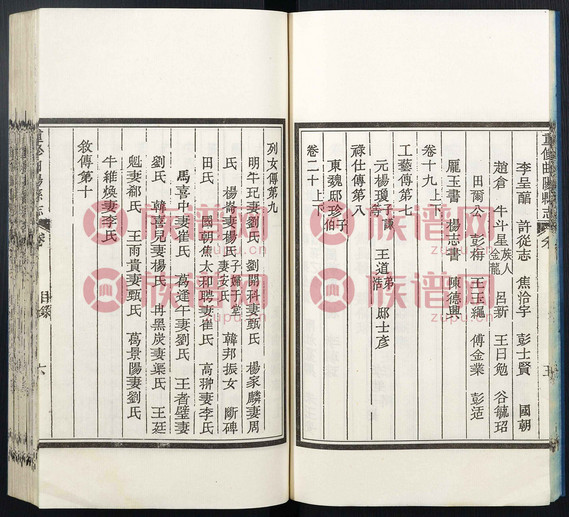 重修曲陽縣志 卷 五
李呈藟 許從志 焦浴宇 彭士賢 國朝
趙倉 牛斗星 族人金龍 呂新 王日勉 谷毓㺹
田爾公 彭梅 王玉繩 傅金業 彭适
龎玉書 楊志書 陳德興
卷十九 上下
工藝傳第七
元楊瓊 子 等 王道浩 弟 邸士彥
祿仕傳第八
東魏邸珍 子伯
卷二十 上下
列女傳第九
明牛玘妻劉氏 劉開科妻甄氏 楊家麟妻周
氏 楊崙妻楊氏 子婦于堂妻安氏 韓邦振女 斷碑
田氏 國朝焦太和聘妻崔氏 高翀妻李氏
馬喜中妻崔氏 萬逢午妻劉氏 王者璧妻
劉氏 韓喜見妻楊氏 冉黑炭妻葉氏 王廷
魁妻郗氏 王雨貴妻甄氏 萬景陽妻劉氏
牛維煥妻李氏
敘傳第十
重修曲陽縣志 卷 目錄 六
族谱网
zupu.cn